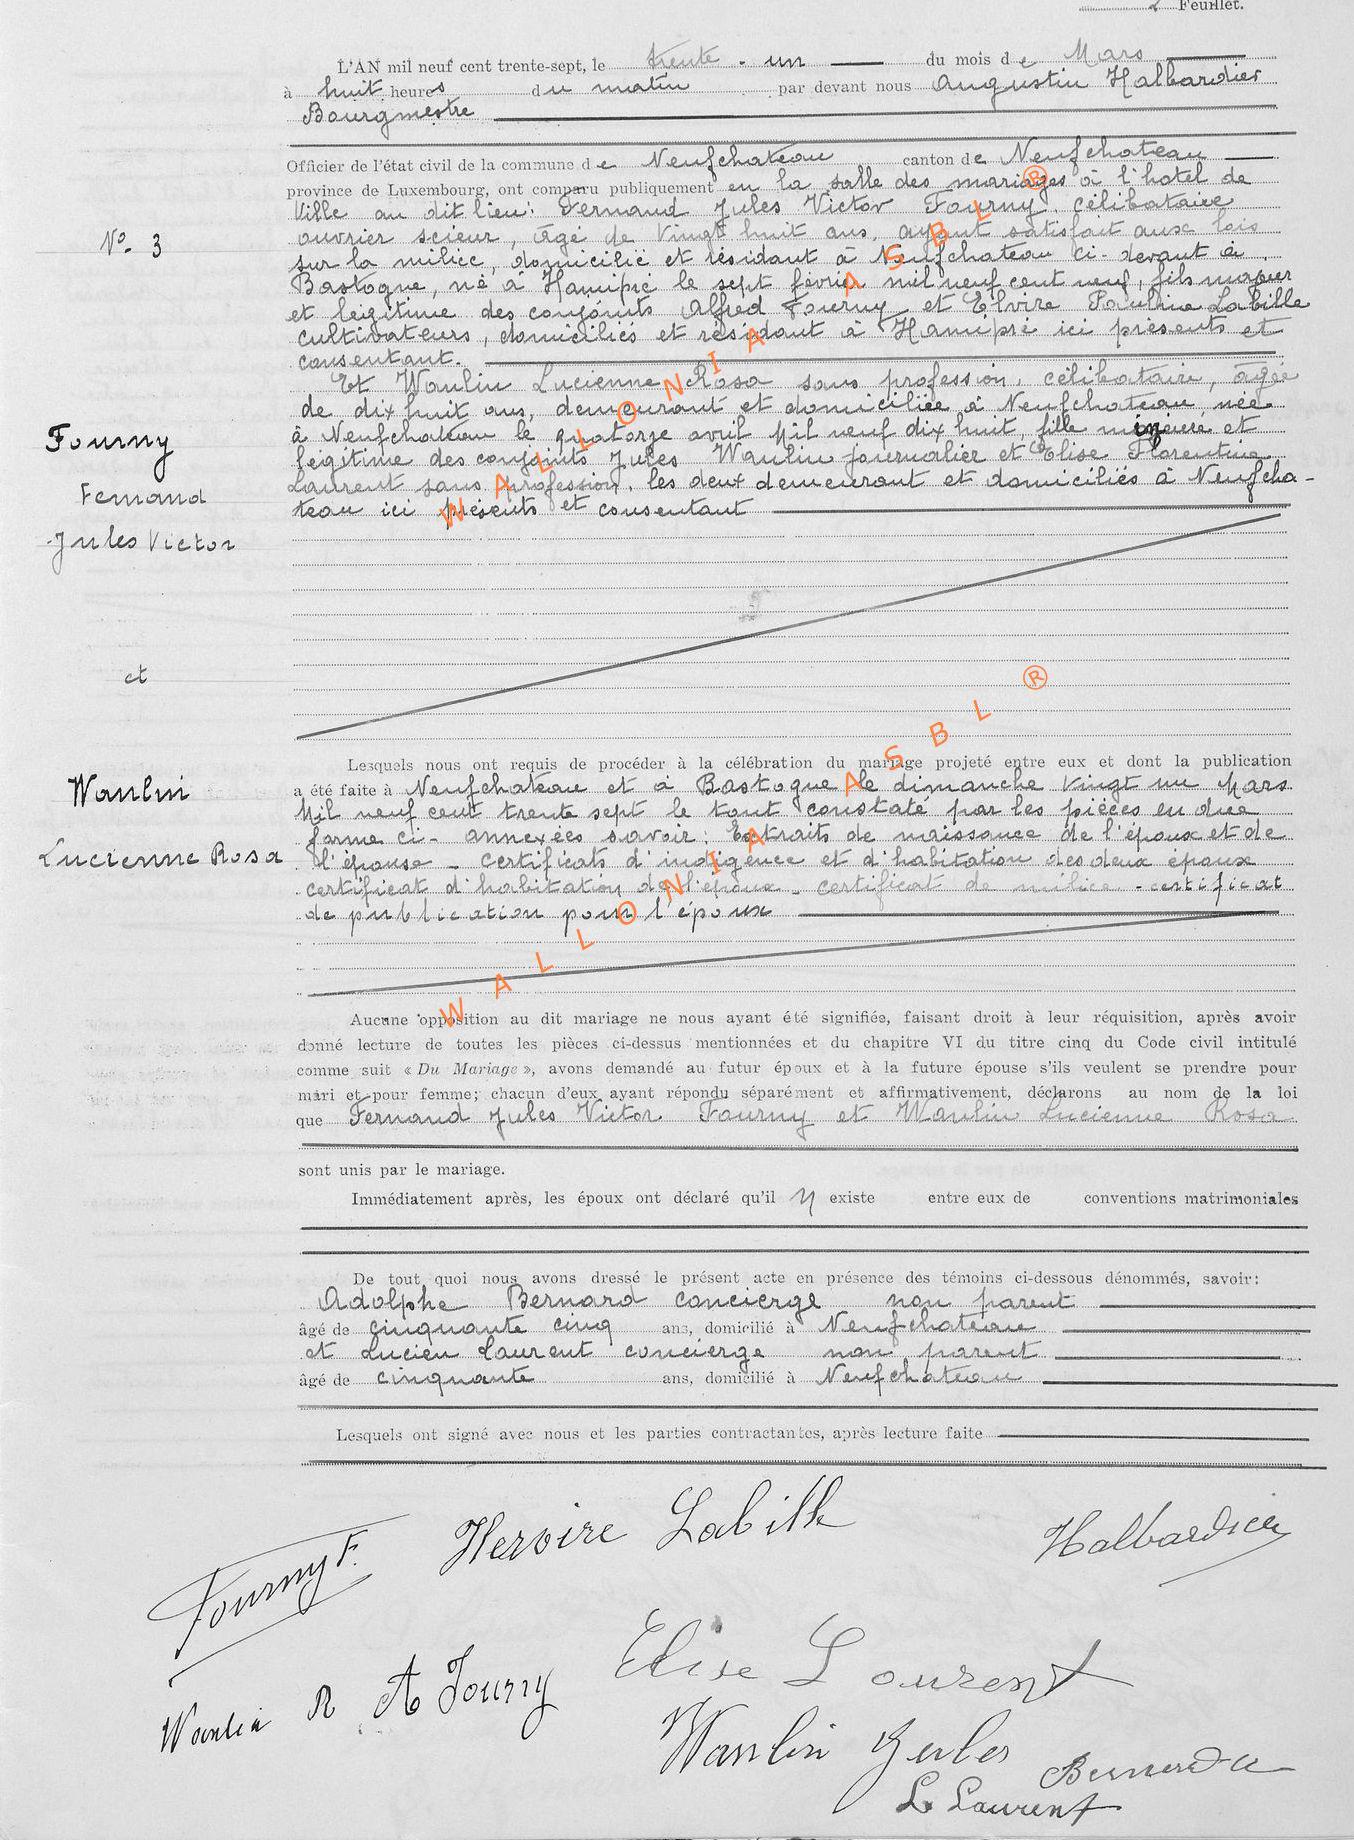 2 Feuillet.
L'AN mil neuf cent trente-sept, le trente-un du mois de Mars
à huit heures du matin par devant nous Augustin Halbardier
Bourgmestre
Officier de l'état civil de la commune de Neufchateau canton de Neufchateau
province de Luxembourg, ont comparu publiquement en la salle des mariages à l'hotel de
Ville au dit lieu: Fernand Jules Victor Fourny, célibataire
ouvrier scieur, âgé de vingt huit ans, ayant satisfait aux lois
N° 3
sur la milice, domicilié et résidant à Neufchateau ci-devant à
Bastogne, né à Hamipré le sept février mil neuf cent neuf, fils majeur
et legitime des conjoints Alfred Fourny et Elvire Pauline Labille
cultivateurs, domiciliés et résidant à Hamipré ici présents et
consentant.
Et Wanlin Lucienne Rosa sans profession, célibataire, agée
de dix huit ans, demeurant et domiciliée à Neufchateau, née
à Neufchateau le quatorze avril Mil neuf dix huit, fille mineure et
Fourny
legitime des conjoints Jules Wanlin journalier et Elise Florentine
Laurent sans profession, les deux demeurant et domiciliés à Neufcha-
Fernand
teau ici présents et consentant
Jules Victor
et
WALLONIA ASBL ®
Lesquels nous ont requis de procéder à la célébration du mariage projeté entre eux et dont la publication
Wanlin
a été faite à Neufchateau et à Bastogne le dimanche vingt un Mars
Mil neuf cent trente sept le tout constaté par les pièces en due
forme ci-annexées savoir: Extraits de naissance de l'époux et de
Lucienne Rosa
l'épouse - certificats d'indigence et d'habitation des deux époux
certificat d'habitation de l'époux - certificat de milice - certificat
de publication pour l'époux
WALLONIA ASBL ®
Aucune opposition au dit mariage ne nous ayant été signifiée, faisant droit à leur réquisition, après avoir
donné lecture de toutes les pièces ci-dessus mentionnées et du chapitre VI du titre cinq du Code civil intitulé
comme suit « Du Mariage », avons demandé au futur époux et à la future épouse s'ils veulent se prendre pour
mari et pour femme; chacun d'eux ayant répondu séparément et affirmativement, déclarons au nom de la loi
que Fernand Jules Victor Fourny et Wanlin Lucienne Rosa
sont unis par le mariage.
Immédiatement après, les époux ont déclaré qu'il n'existe entre eux de conventions matrimoniales
De tout quoi nous avons dressé le présent acte en présence des témoins ci-dessous dénommés, savoir:
Adolphe Bernard concierge non parent
âgé de cinquante cinq ans, domicilié à Neufchateau
et Lucien Laurent concierge non parent
âgé de cinquante ans, domicilié à Neufchateau
Lesquels ont signé avec nous et les parties contractantes, après lecture faite
Hervire Labille
Halbardier
Fourny F.
Elise Laurent
Wanlin R A Fourny
Wanlin Jules
Bernard A
L Laurent